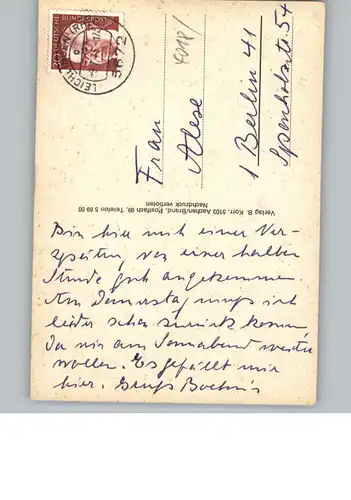 DEUTSCHE BUNDESPOST
5672
LEICHLINGEN
Frau
Alese
1 Berlin 41
Sponholzstr. 54
Verlag B. Korr, 5103 Aachen/Brand, Postfach 69, Telefon 5 69 00
Nachdruck verboten
Bin hier mit einer Ver-
spätung von einer halben
Stunde gut angekommen.
Am Donnerstag muss ich
leider schon zurück kommen,
da wir am Sonnabend weiter
wollen. Es gefällt mir
hier. Gruß